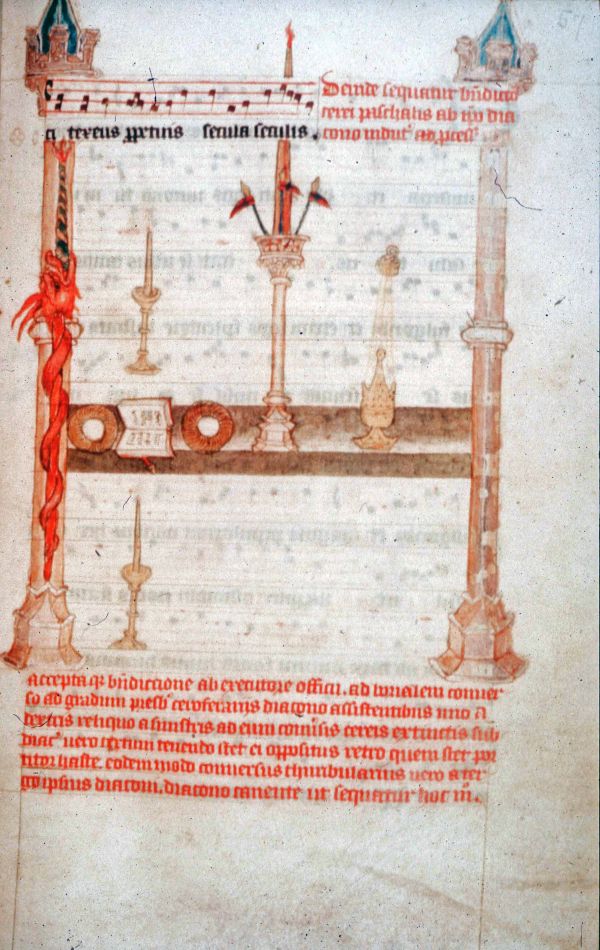 Deinde sequatur bn̄dictio
cerei paschalis ab ipo dia
ci tereus ꝑpetuus secula seculis.
cono indut' ad pcess'
accepta qꝫ bn̄diccione ab executore officii. ad borialem conuer
so ad gradum presb' ceroferariis diacono assistentibus uno a
dextris reliquo a sinistris ad eum conuersis cereis extinctis sub
diac' uero textum tenendo stet ei oppositus retro quem stet por
titor haste. eodem modo conuersus thuribularius uero a ter
go ipsius diaconi. diacono canente ut sequatur hoc m̄.
57